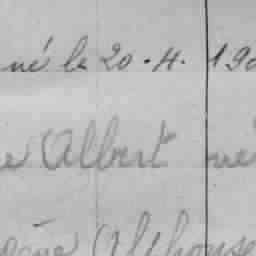 né le 20.4.190
e Albert né
Alphonse